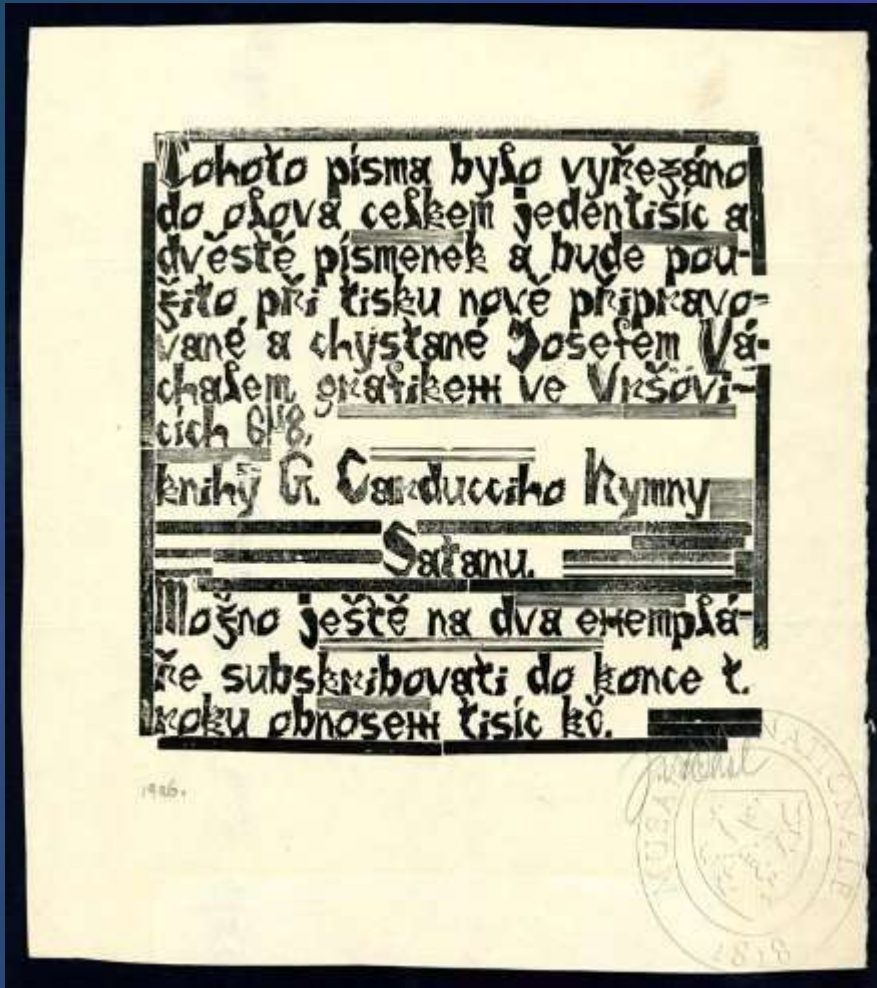 Tohoto písma bylo vyřezáno
do olova celkem jedentisíc a
dvěstě písmenek a bude pou-
žito při tisku nově připravo-
vané a chystané Josefem Vá-
chalem grafikem ve Vršovi-
cích
knihy G. Carducciho Hymny
Satanu.
Možno ještě na dva exemplá-
ře subskribovati do konce t.
roku obnosem tisíc kč.
1926.
MUSAEUM NATIONALE
1818